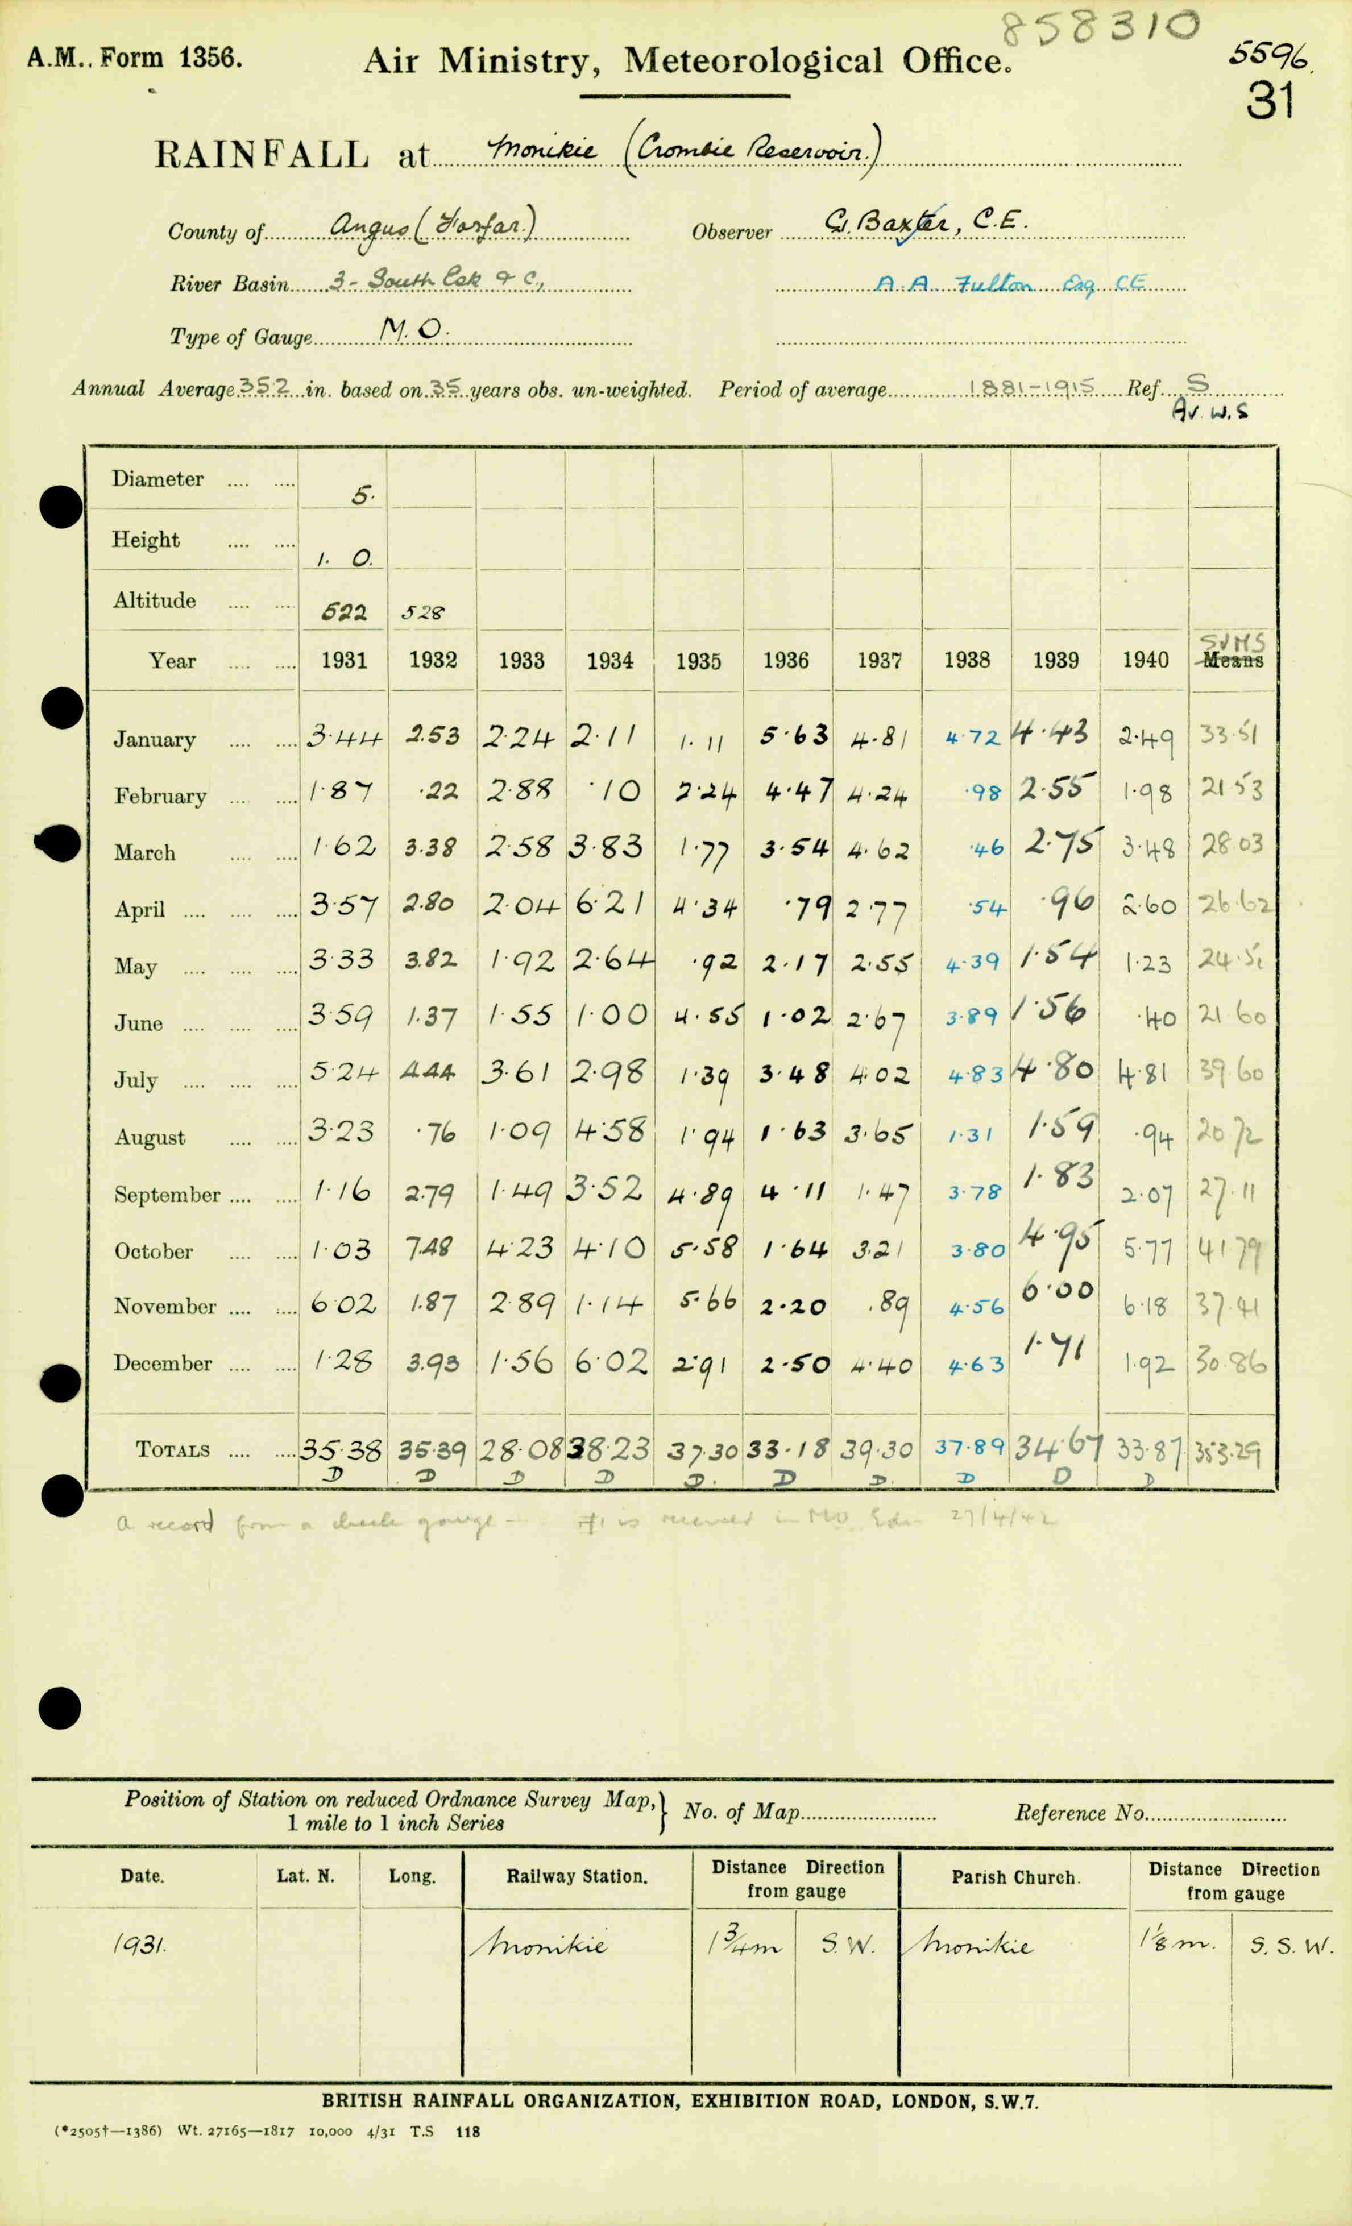 858310
A.M. Form 1356. Air Ministry, Meteorological Office. 5596.
31
RAINFALL at Monikie (Crombie Reservoir.)
County of Angus (Forfar.) Observer G. Baxter, C.E.
River Basin 3 - South Esk & C, A. A. Fulton Esq CE
Type of Gauge M.O.
Annual Average 35.2 in. based on 35 years obs. un-weighted. Period of average 1881-1915 Ref. S
Av. W.S
Diameter .... .... 5.
Height .... .... 1. 0.
Altitude .... .... 522 528
SUMS
Year .... .... 1931 1932 1933 1934 1935 1936 1937 1938 1939 1940 Means
January .... .... 3.44 2.53 2.24 2.11 1.11 5.63 4.81 4.72 4.43 2.49 33.51
February .... .... 1.87 .22 2.88 .10 2.24 4.47 4.24 .98 2.55 1.98 21.53
March .... .... 1.62 3.38 2.58 3.83 1.77 3.54 4.62 .46 2.75 3.48 28.03
April .... .... .... 3.57 2.80 2.04 6.21 4.34 .79 2.77 .54 .96 2.60 26.62
May .... .... .... 3.33 3.82 1.92 2.64 .92 2.17 2.55 4.39 1.54 1.23 24.51
June .... .... .... 3.59 1.37 1.55 1.00 4.55 1.02 2.67 3.89 1.56 .40 21.60
July .... .... .... 5.24 4.44 3.61 2.98 1.39 3.48 4.02 4.83 4.80 4.81 39.60
August .... .... 3.23 .76 1.09 4.58 1.94 1.63 3.65 1.31 1.59 .94 20.72
September .... .... 1.16 2.79 1.49 3.52 4.89 4.11 1.47 3.78 1.83 2.07 27.11
October .... .... 1.03 7.48 4.23 4.10 5.58 1.64 3.21 3.80 4.95 5.77 41.79
November .... .... 6.02 1.87 2.89 1.14 5.66 2.20 .89 4.56 6.00 6.18 37.41
December .... .... 1.28 3.93 1.56 6.02 2.91 2.50 4.40 4.63 1.71 1.92 30.86
TOTALS .... .... 35.38 35.39 28.08 38.23 37.30 33.18 39.30 37.89 34.67 33.87 353.29
D D D D D. D D. D D D
a record from a check gauge - is received in MO. Edin 27/4/42
Position of Station on reduced Ordnance Survey Map, } No. of Map Reference No.
1 mile to 1 inch Series
Date. Lat. N. Long. Railway Station. Distance Direction from gauge Parish Church. Distance Direction from gauge
1931. Monikie 1¾m S.W. Monikie 1⅛ m. S.S.W.
BRITISH RAINFALL ORGANIZATION, EXHIBITION ROAD, LONDON, S.W.7.
(*2505†—1386) Wt. 27165—1817 10,000 4/31 T.S 118